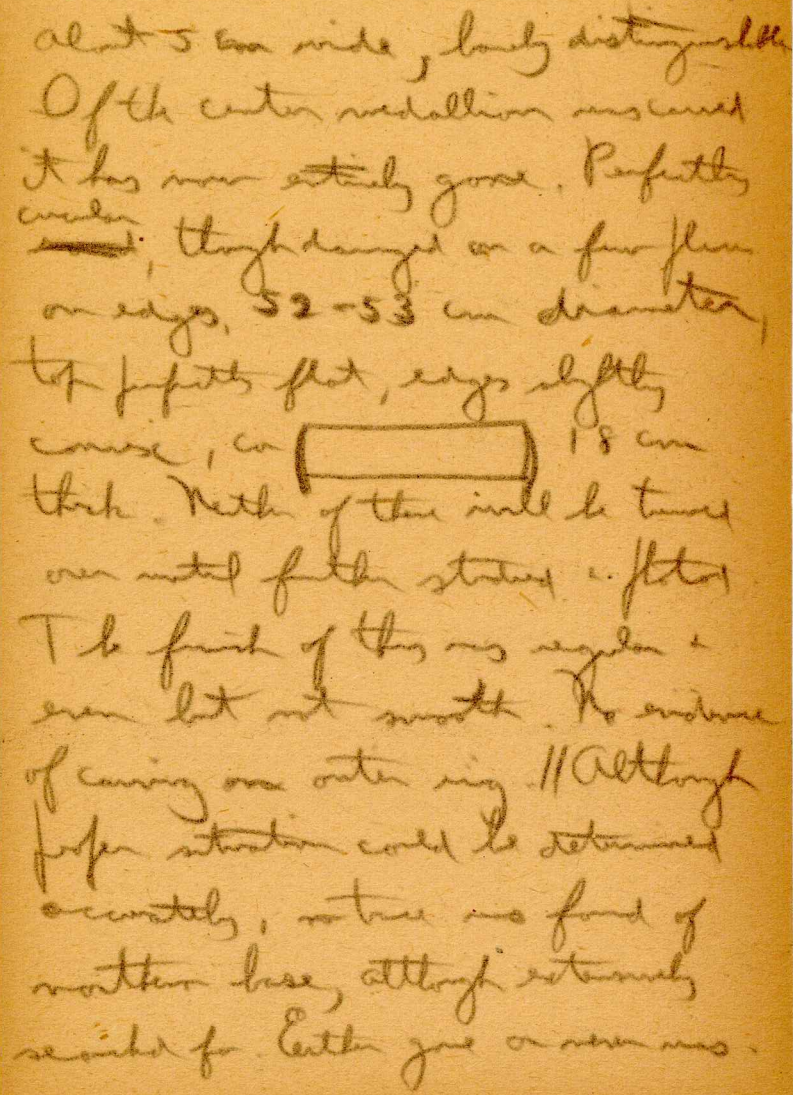 about 5 cm wide, barely distinguishable
Of the center medallion uncarved
it has now entirely gone. Perfectly
circular
, though damaged on a few places
on edges, 52-53 cm diameter,
top perfectly flat, edges slightly
convex, ca 18 cm
thick. Neither of these will be turned
over until further studied & photo'd
The finish of this is regular &
even but not smooth. No evidence
of carving on outer ring. // Although
proper situation could be determined
accurately, no trace was found of
northern base, although extensively
searched for. Either gone or never was.